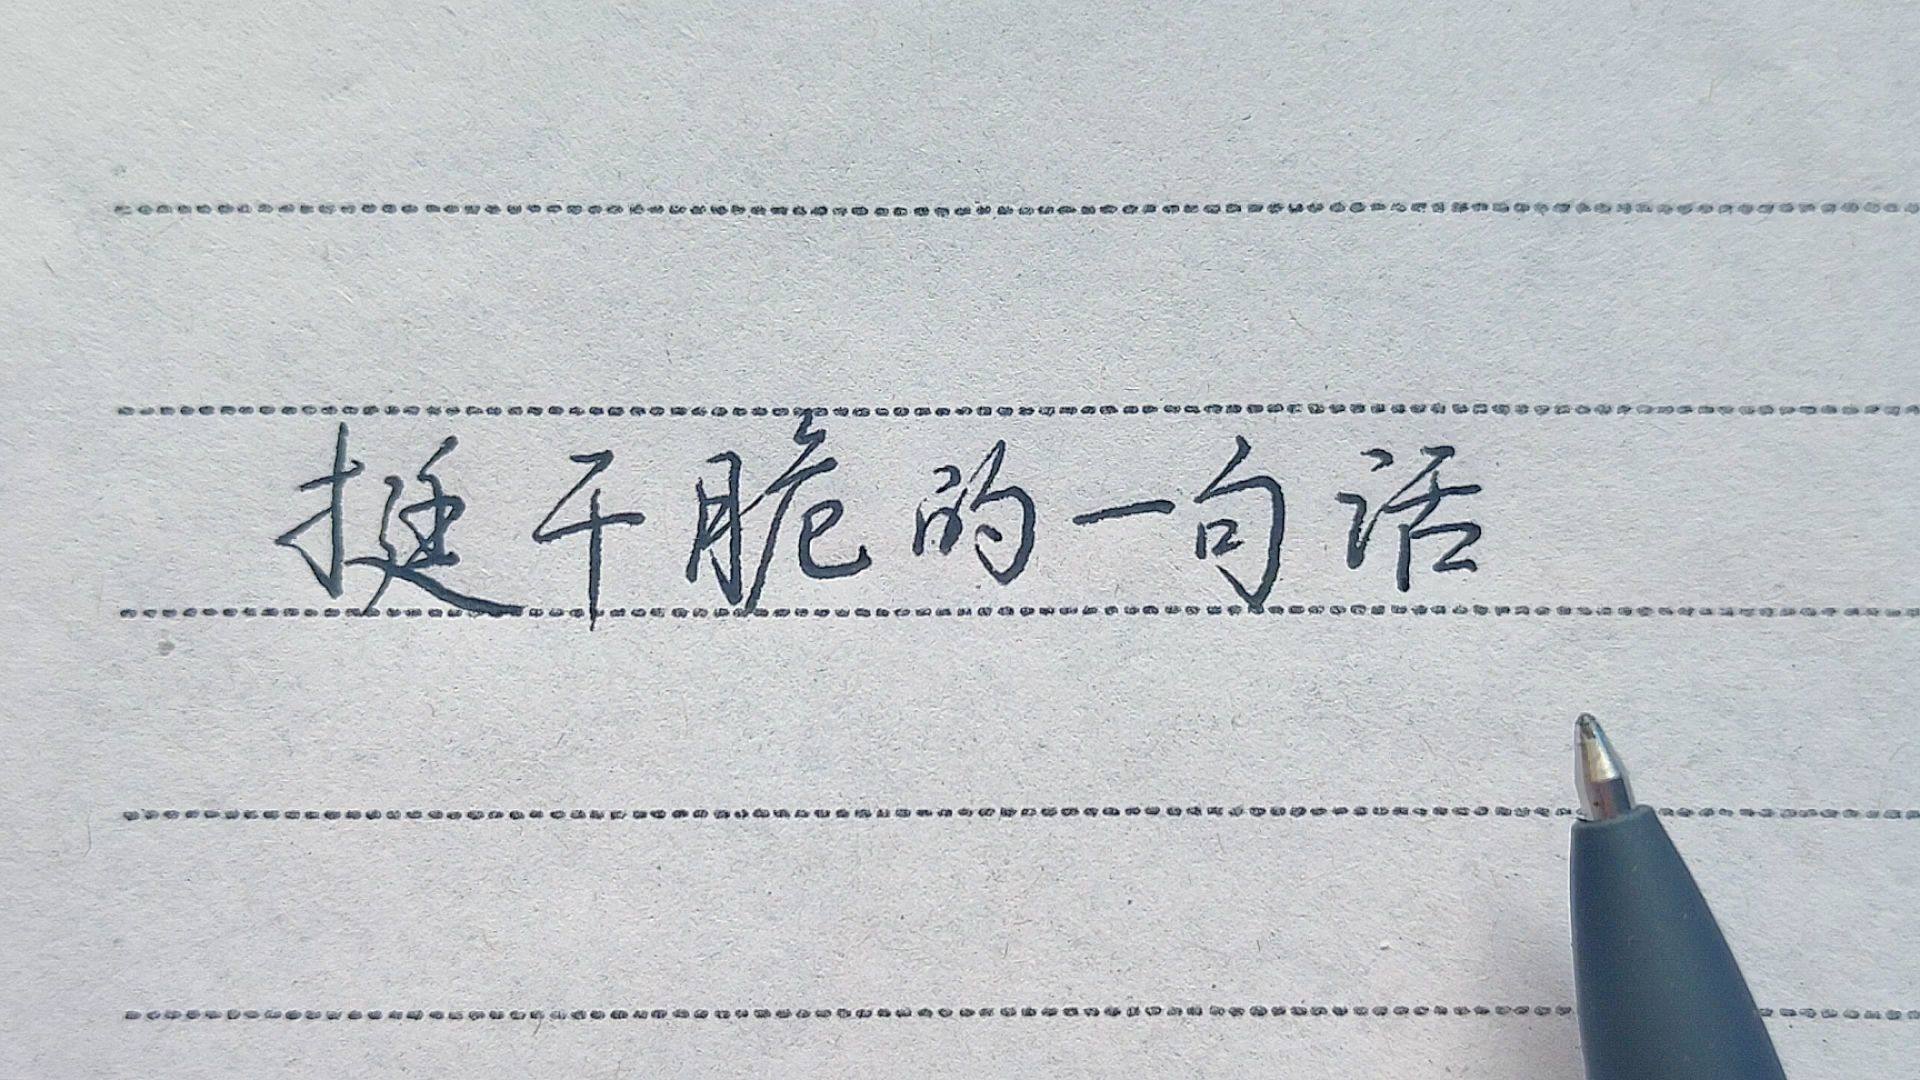 挺干脆的一句话